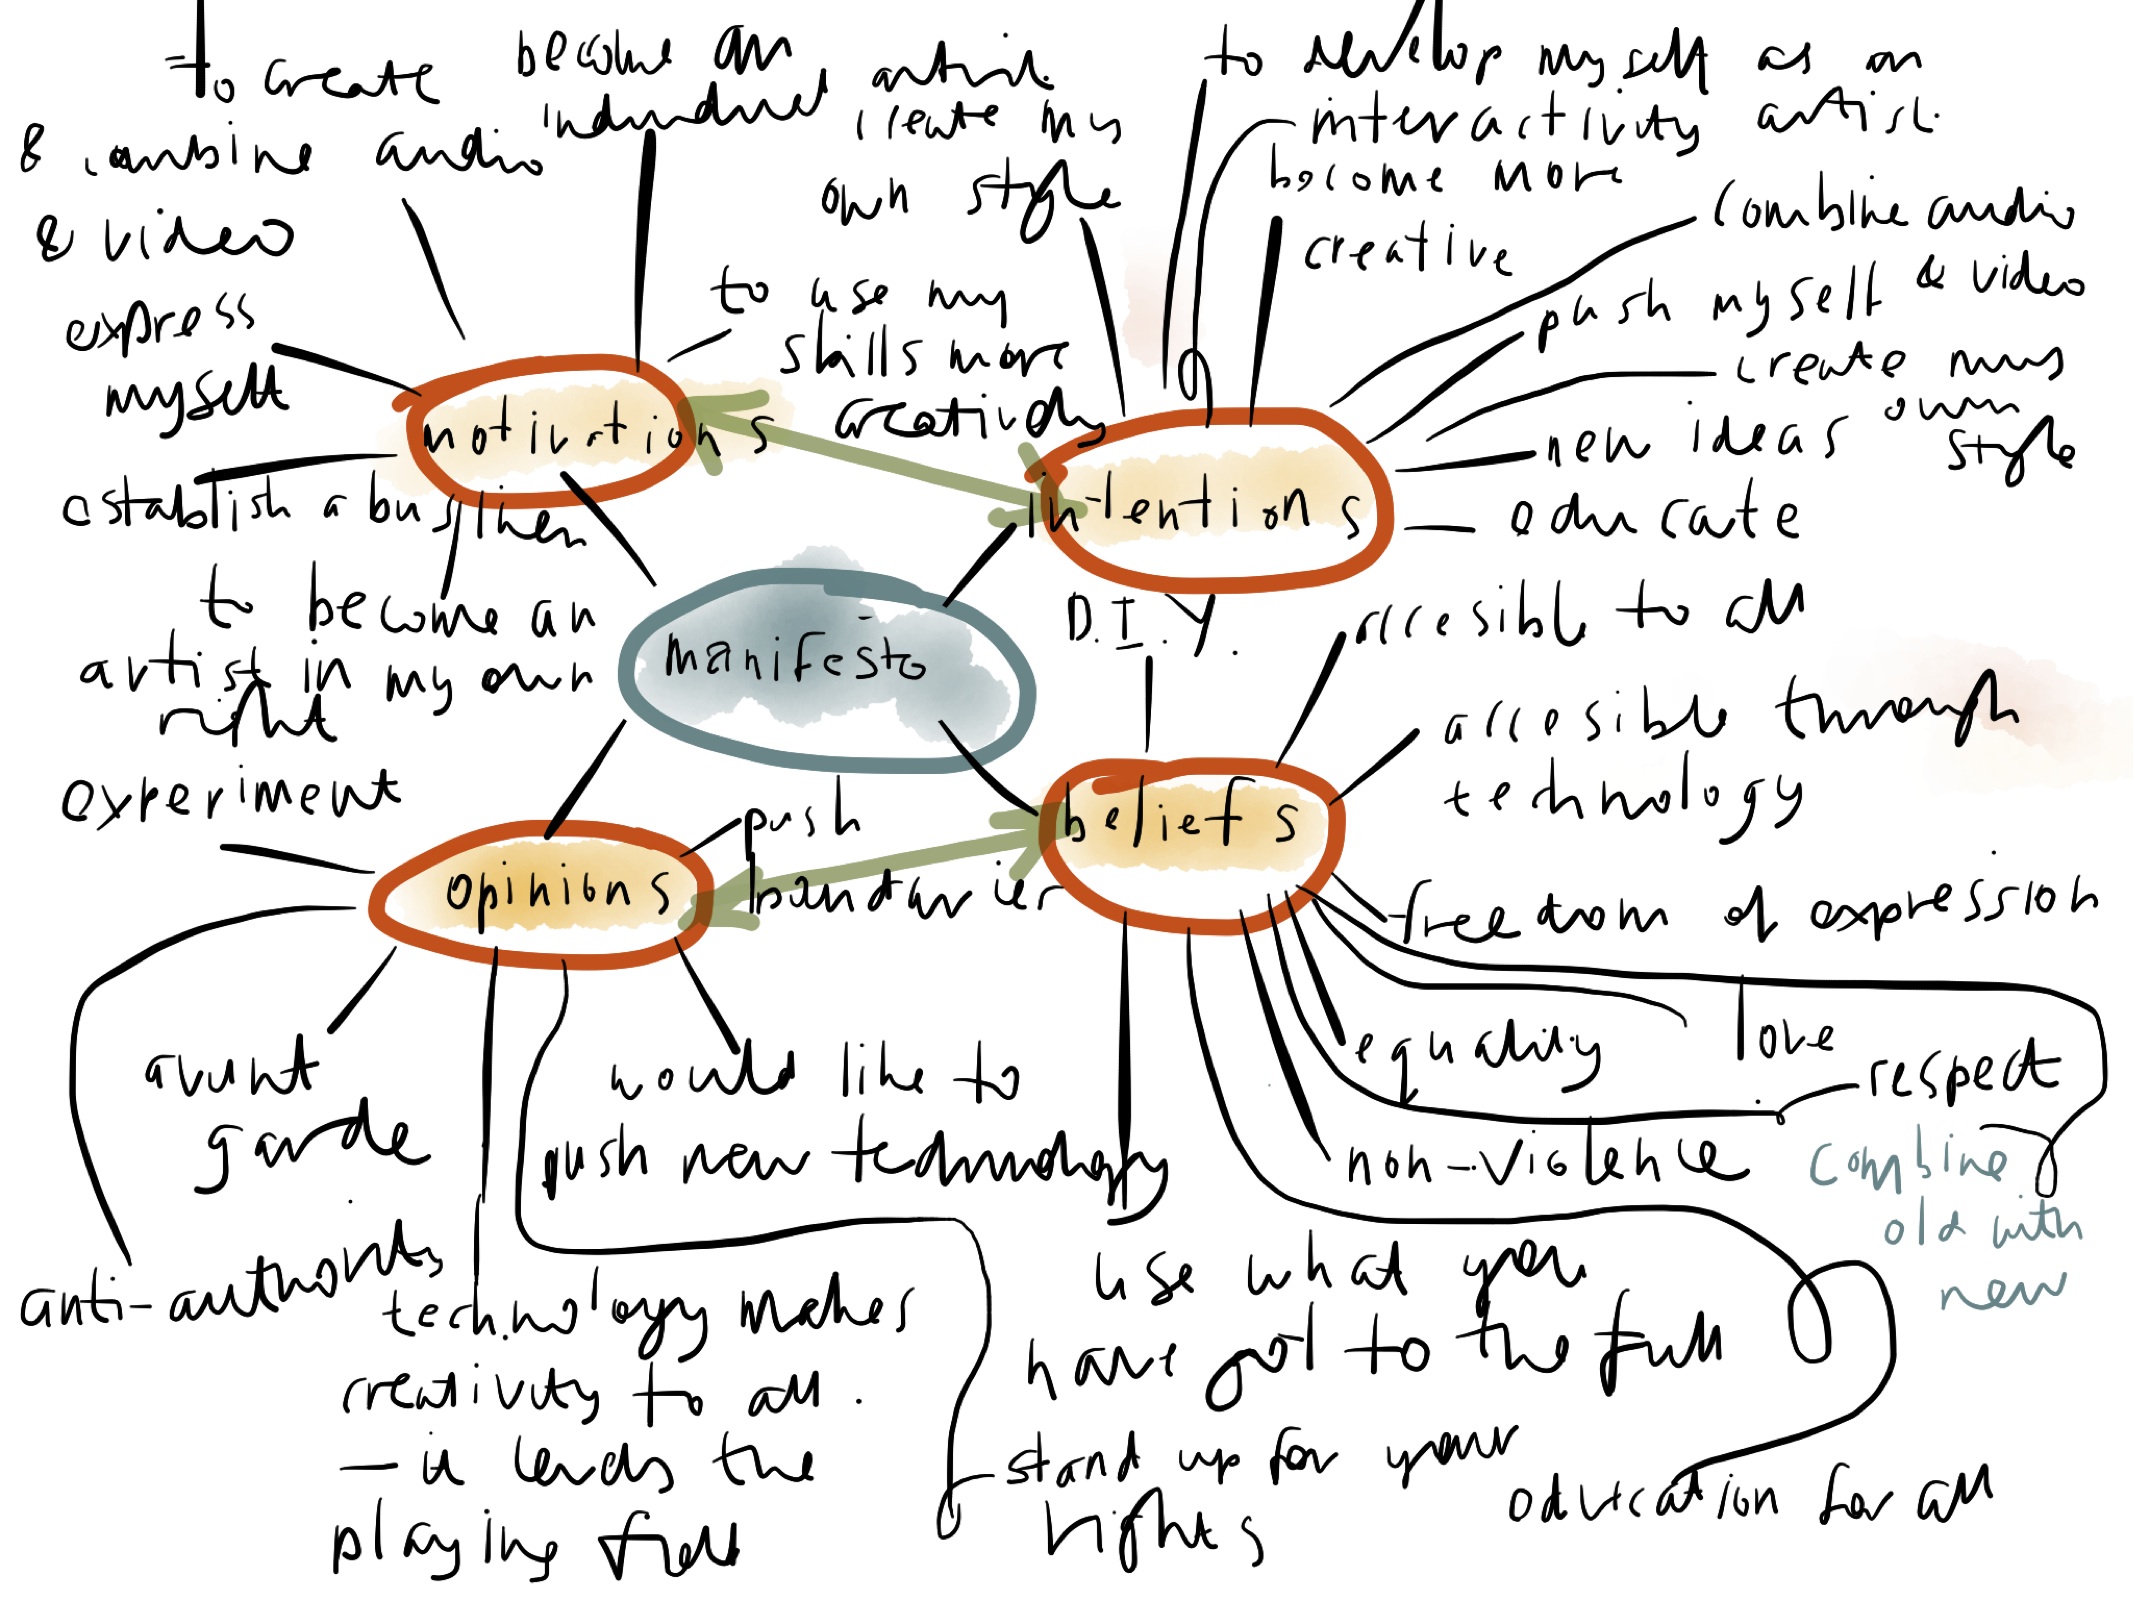 to create
& combine audio
& video
become an
individual artist
create my
own style
express
myself
to use my
skills more
creatively
motivations
establish a business
to become an
artist in my own
right
to develop myself as an
interactivity artist.
become more
creative
combine audio
& video
push myself
create my
own
style
new ideas
educate
intentions
manifesto
D.I.Y.
accesible to all
accesible through
technology
beliefs
freedom of expression
love
equality
respect
non-violence
combine
old with
new
use what you
have got to the full
education for all
experiment
opinions
push
boundaries
avant
garde
would like to
push new technology
anti-authority
technology makes
creativity to all.
- it levels the
playing field
stand up for your
rights